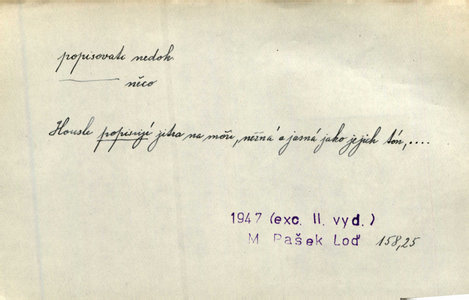 popisovati nedok.
něco
Housle popisují jitra na moři, něžná a jasná jako jejich tón,....
1947 (exc. II. vyd.)
M Pašek Loď 158,25